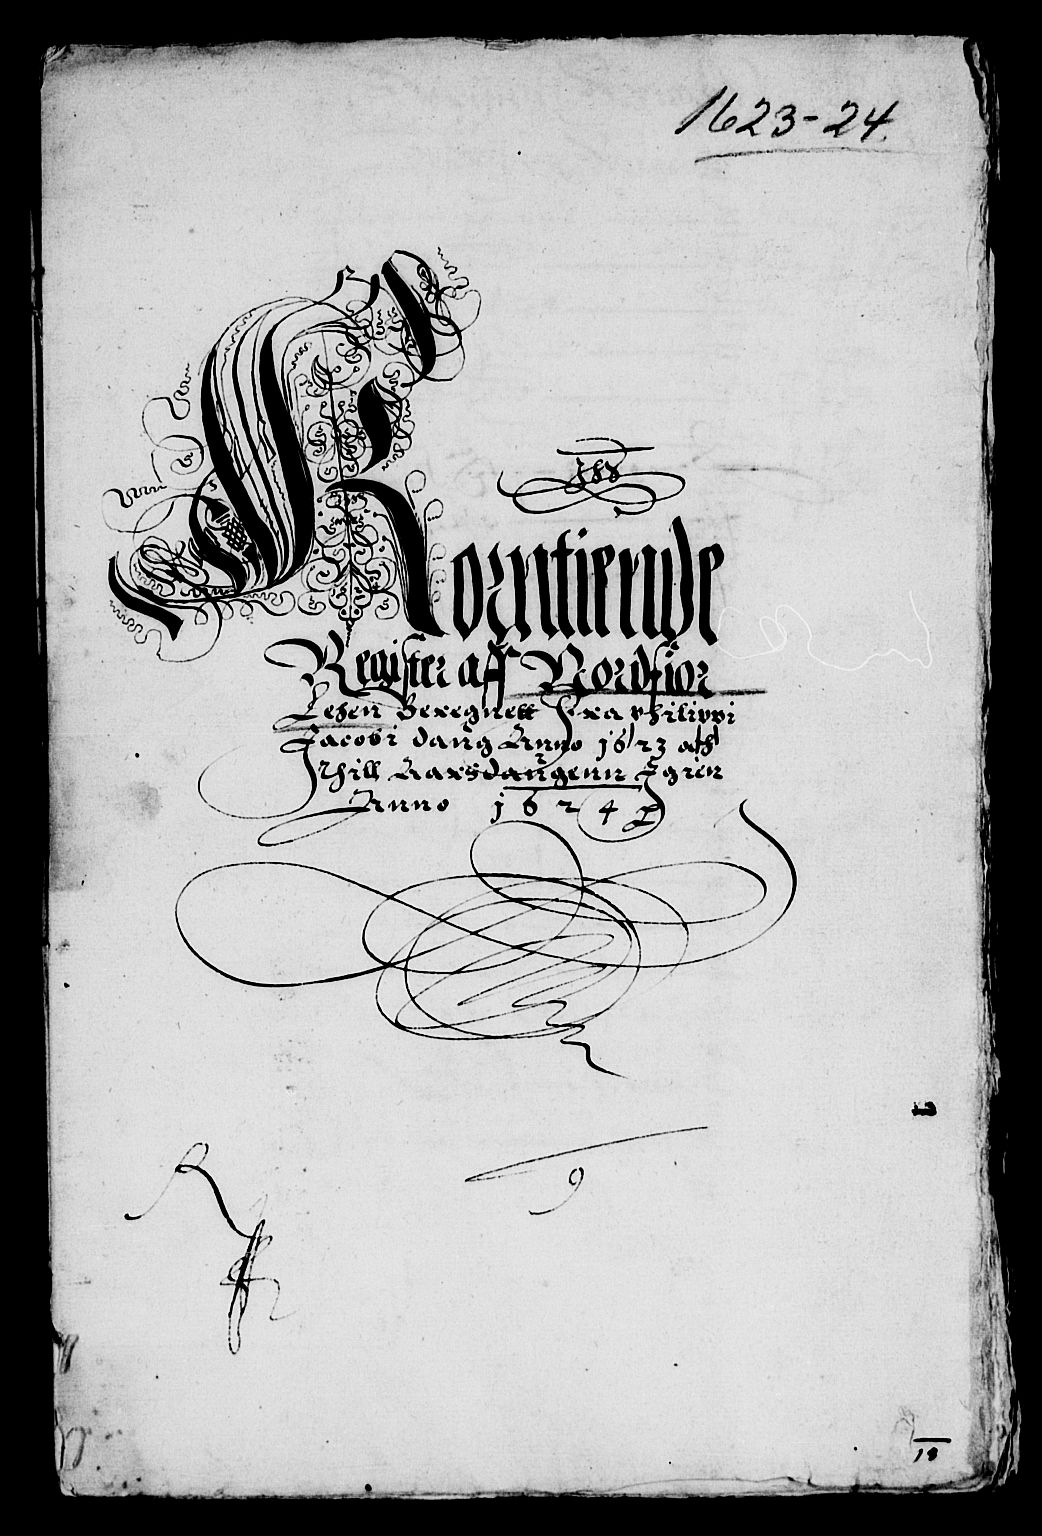 1623-24.
Korntiende
Register aff Nordfior
Lehen Beregnett Fra Philippi
Jacobi daug Anno 1623 och
Thill Aarsdaugenn Igien
Anno 1624
9
18